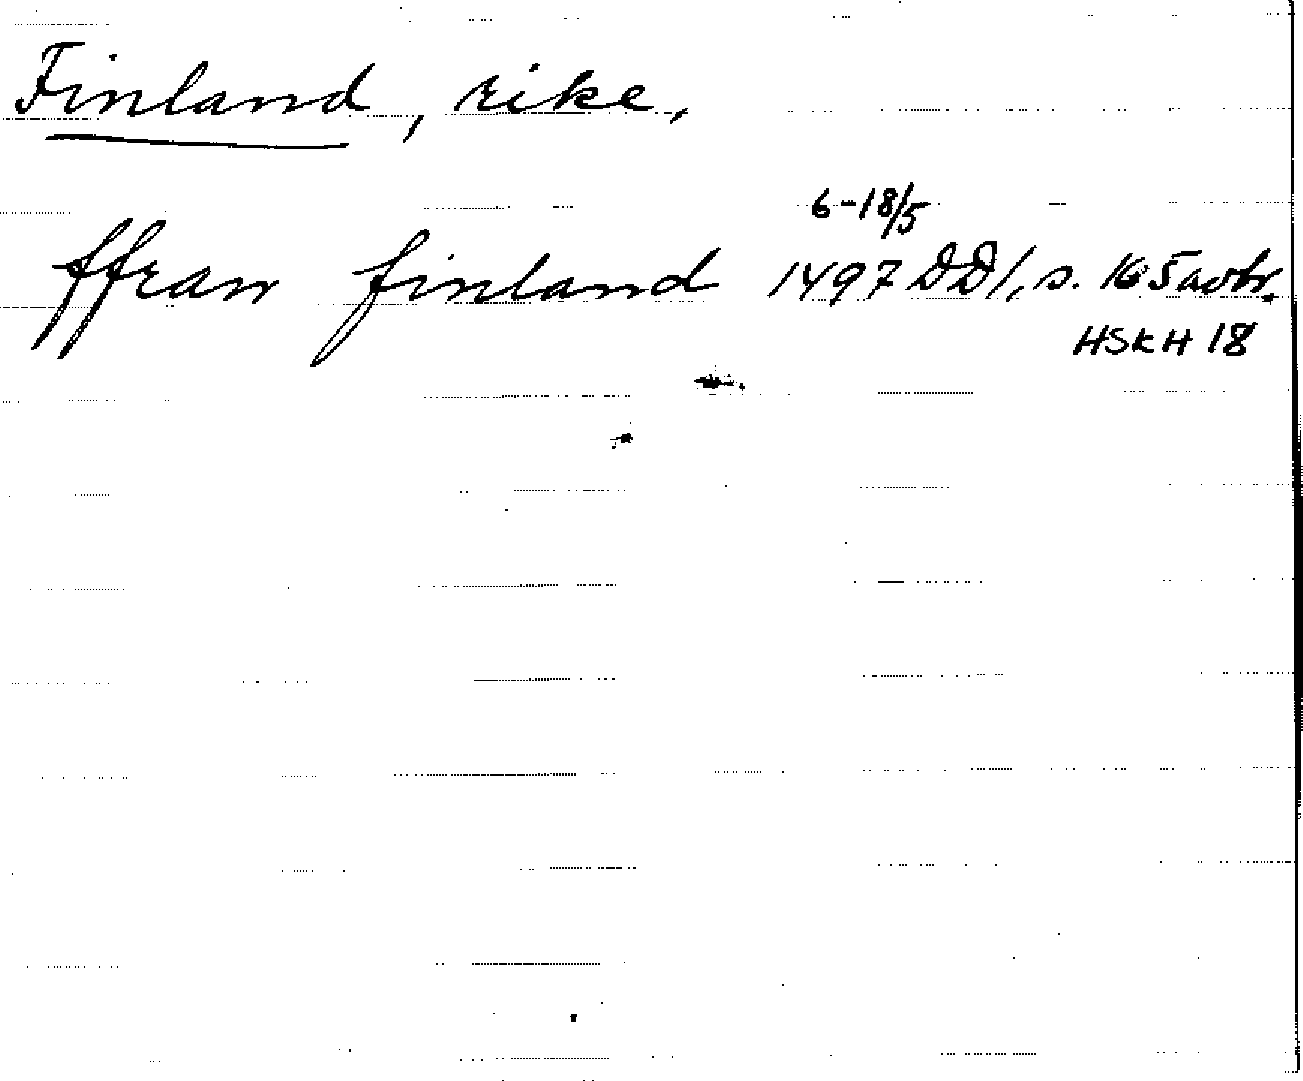 Finland, rike,
6-18/5
ffran finland 1497 DD1, s. 165 avtr.
HSKH 18